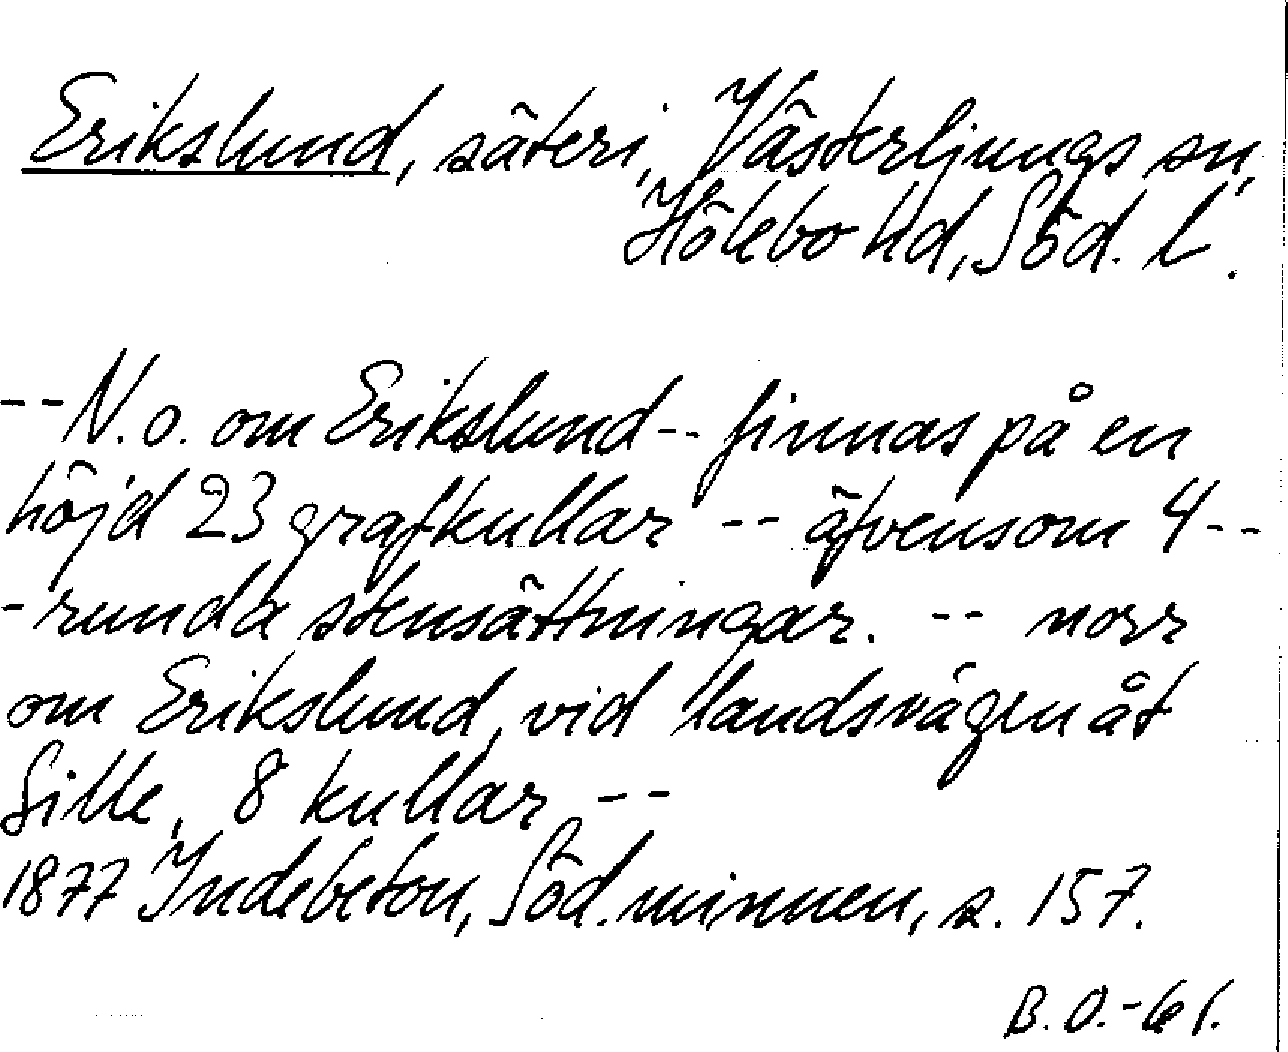 Erikslund, säteri, Västerljungs sn,
Hölebo hd, Söd. l.
-- N.o. om Erikslund -- finnas på en
höjd 23 grafkullar -- äfvensom 4 --
- runda stensättningar. -- norr
om Erikslund, vid landsvägen åt
Sille, 8 kullar --
1877 Indebetou, Söd. minnen, s. 157.
B.O.-61.